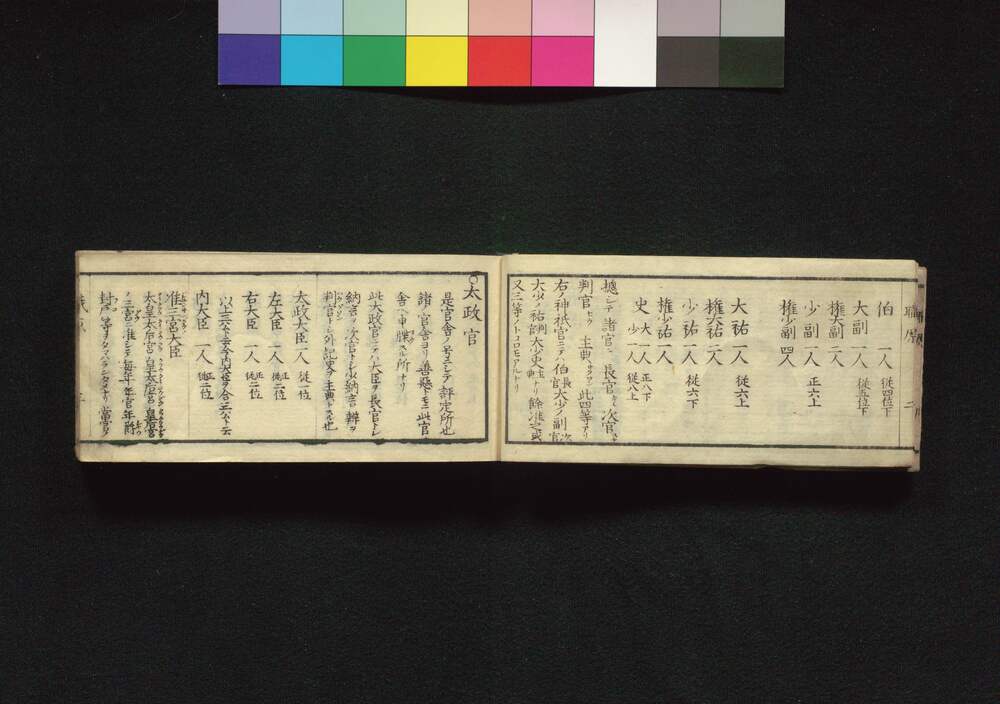 伯 一人 従四位下
大副 一人 従五位下
権大副 一人
少副 一人 正六上
権少副 四人
大祐 一人 従六上
権大祐 一人
少祐 一人 従六下
権少祐 一人
史 大一人 正八下 少一人 従八上
惣シテ諸官ニ長官次官
判官 主典 此四等アリ
右ノ神祇官ニテハ伯長官大少ノ副次官
大少ノ祐判官大少史主典ナリ餘准之或
又三等ノトコロモアルナリ
太政官
是官舎ノ号ニシテ評定所也
諸官舎ヨリ善悪トモニ此官
舎ヘ申牒スル所ナリ
此太政官ニテハ大臣ヲ長官トシ
納言ヲ次官トシ少納言辨ヲ
判官トシ外記史ヲ主典トスル也
太政大臣 一人 従一位
左大臣 一人 正従二位
右大臣 一人 正従二位
以上三公ト云今内大臣ヲ合三公ト云
内大臣 一人 正従二位
准三宮大臣
太皇太后宮皇太后宮皇后宮
ノ三宮ニ准シテ毎年年官年爵
封戸等ヲタマハラシタメナリ當官ノ